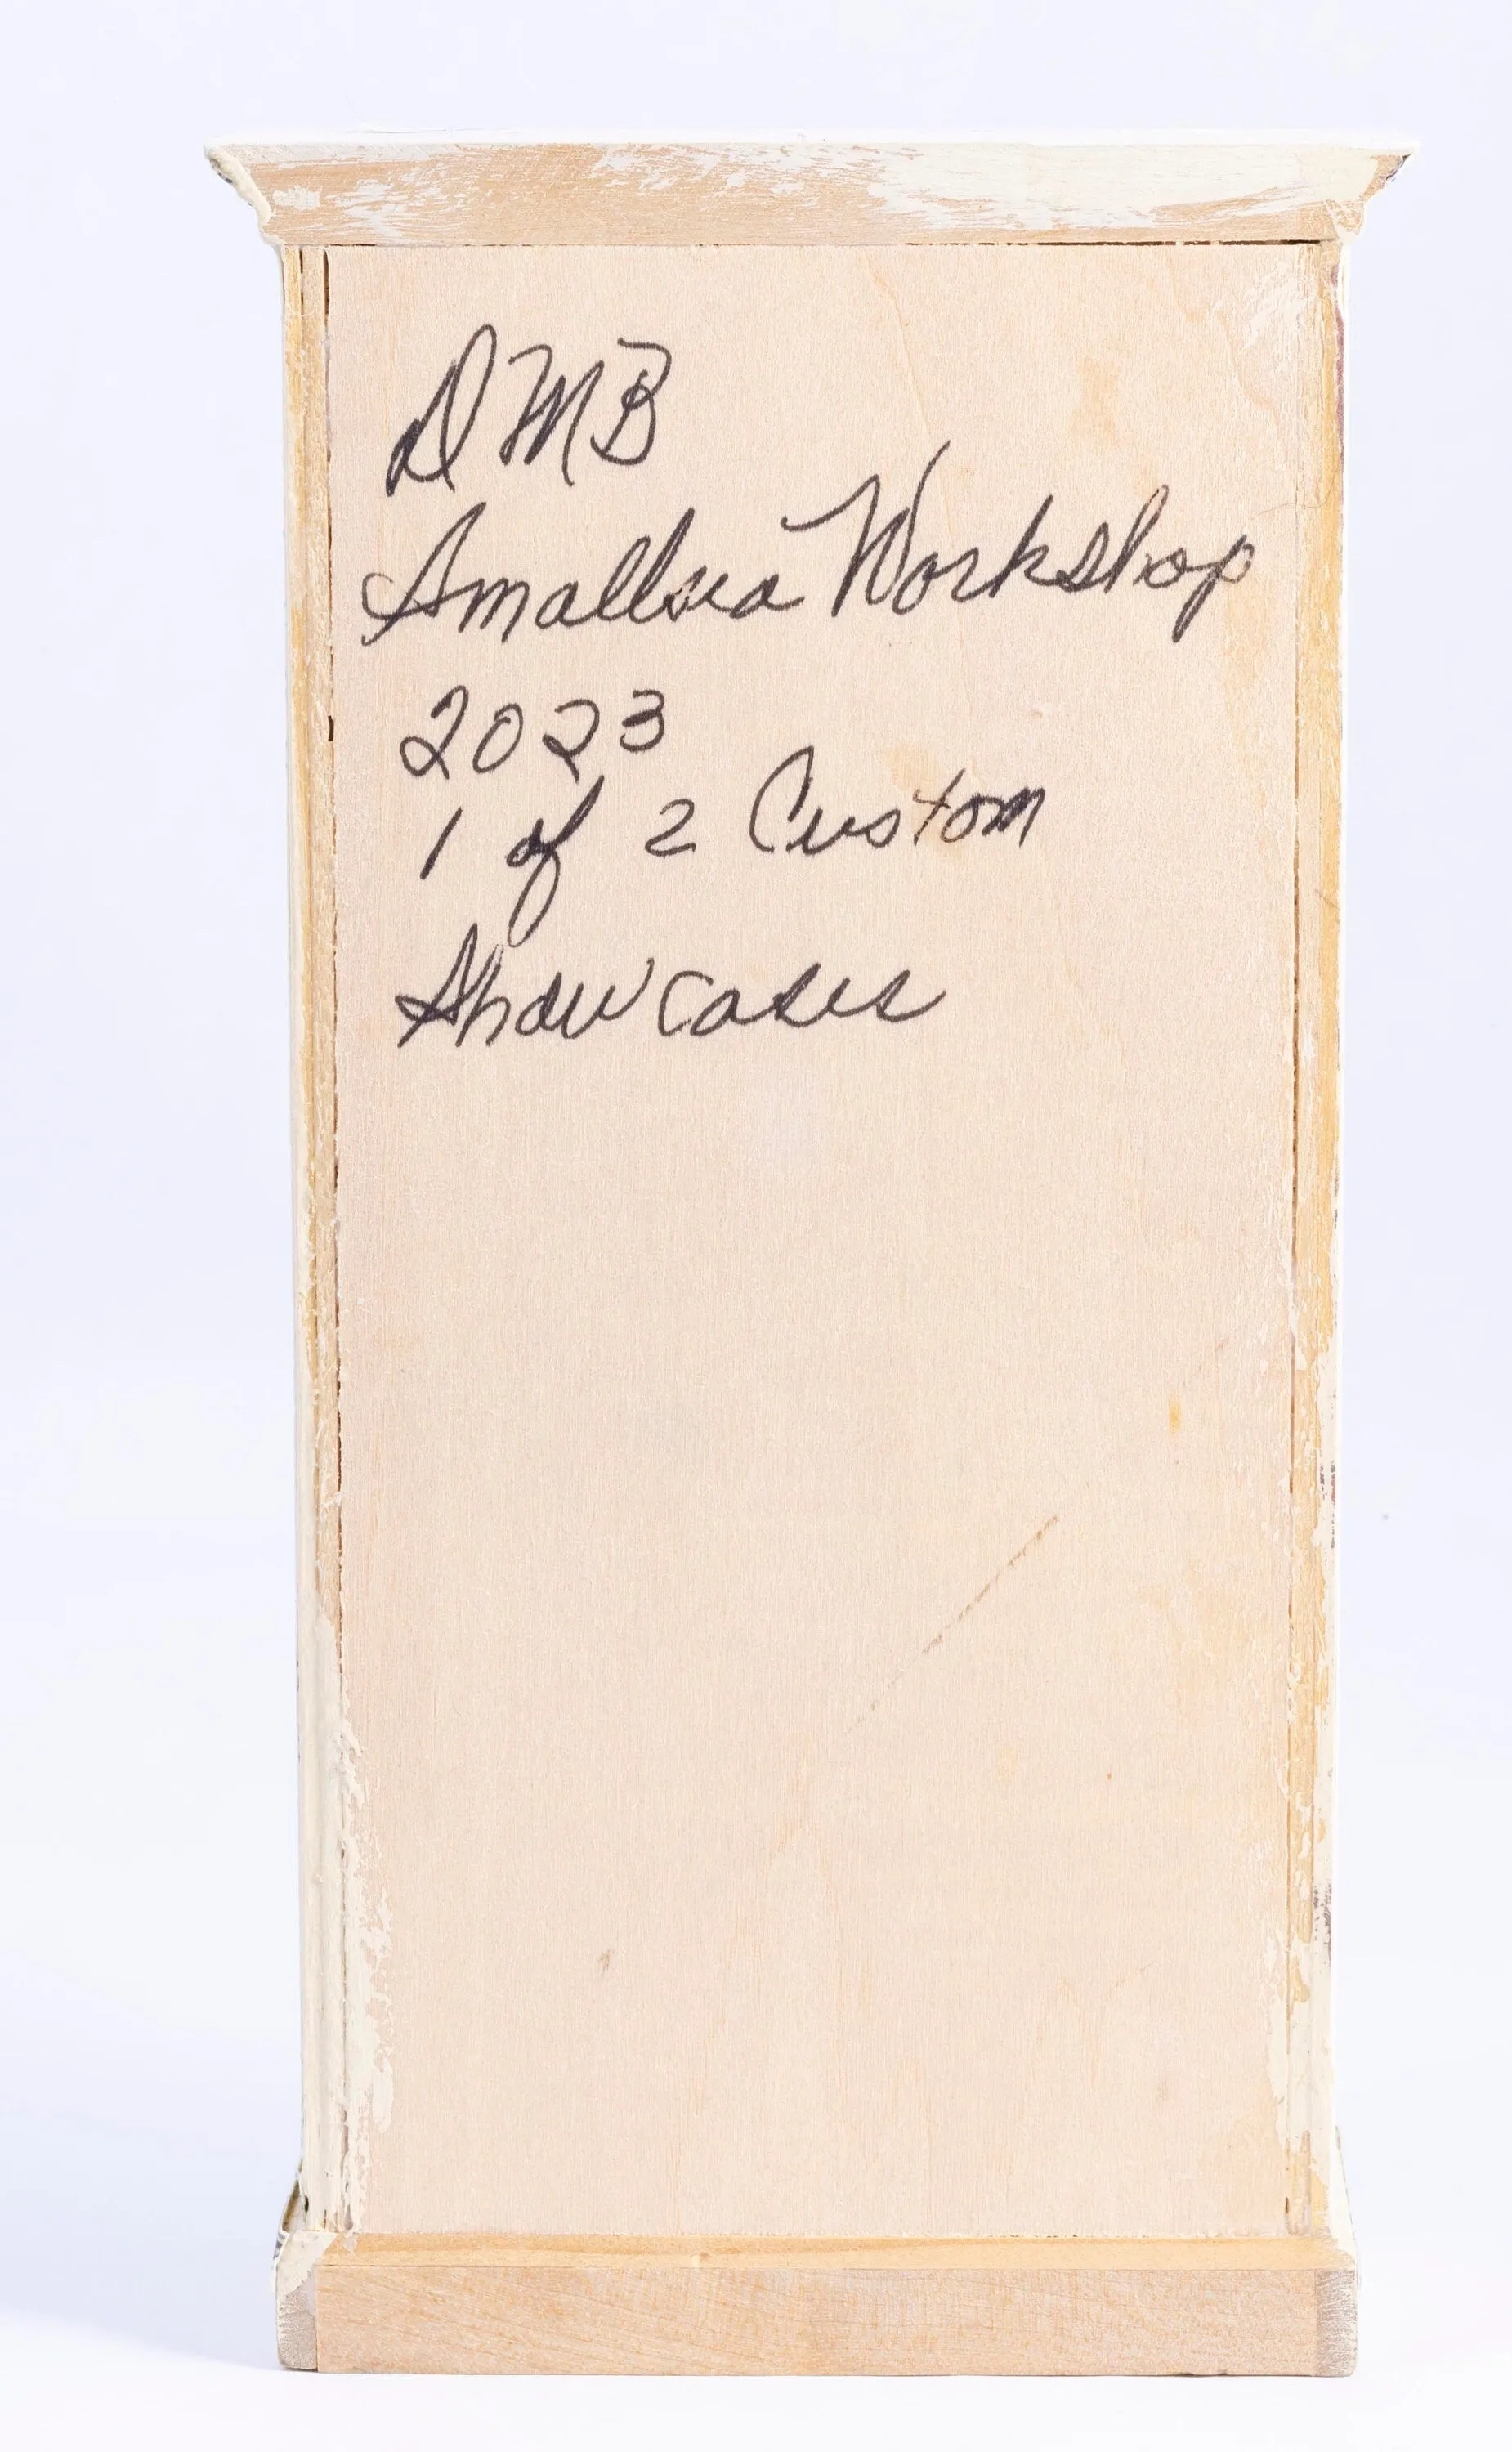 DMB
Smallsea Workshop
2023
1 of 2 Custom
Showcases